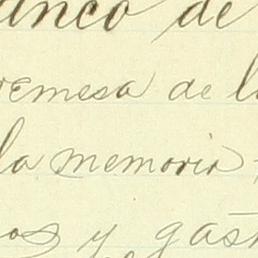 anco de
remesa de l
la memoria
os y gast